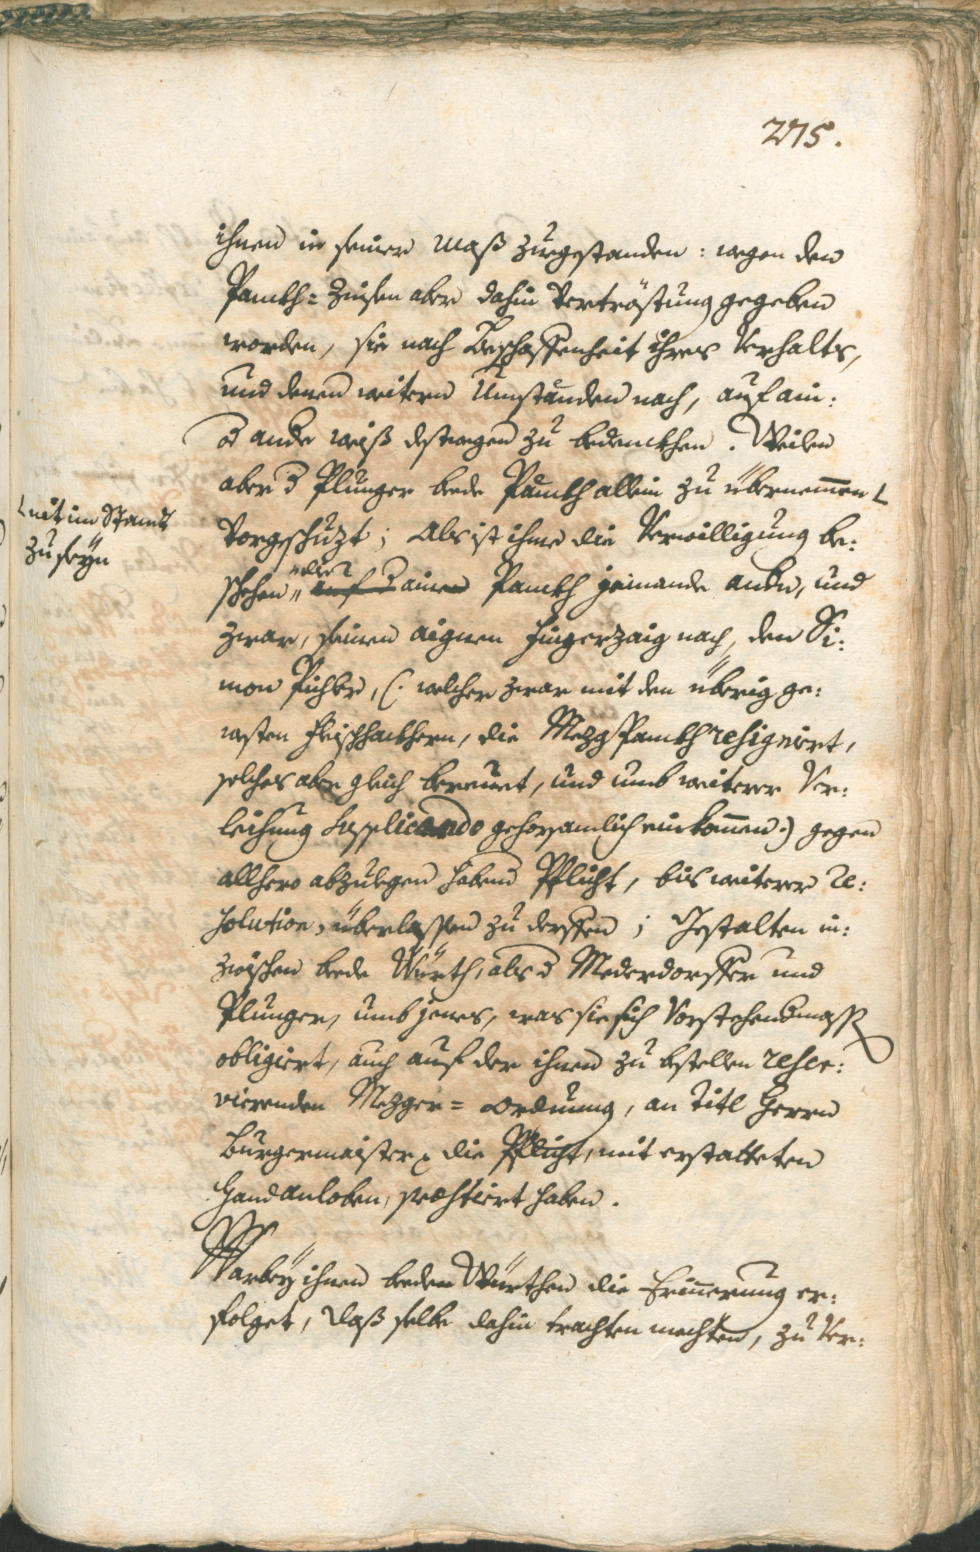 275.
ihnen in seiner Maß zuegestanden: wegen den
Panckh= Zinsen aber dahin Vertröstung gegeben
worden, sie nach Beschaffenheit ihres Verhalts,
und denen weitern Umständen nach, auf ain:
od ande weiß destwegen zu bedenckhen. Weilen
aber d Plunger beede Pänckh allein zu übernemmen L
L nit im Standt
zu seyn
Vorgschuzt; Als ist ihme die Verwilligung be:
schehen, auf d ainen Panckh jemande andn, und
zwar, seinen aignen Fingerzaig nach, den Si:
mon Pichler, (: welcher zwar mit den übrig ge:
westen Fleischhackhern, die Mezgspanckh resigniert,
solches aber gleich bereuet, und umb weiterer Ver:
leihung supplicando gehorsamlich einkommen:) gegen
allhero abzulegen habend Pflicht, bis weiterer re:
solution, überlassen zu derffen; Gestalten in:
zwischen beede Würth, als d Mederdorffer und
Plunger, umb jenes, was sie sich Vorstehendmaß
obligiert, auch auf der ihnen zu bstellen reser:
vierenden Mezger= Ordnung, an Titl Herrn
Burgermaister die Pflicht, mit erstatteten
Handanloben, praestiert haben.
Warbey ihnen beeden Würthen die Erinnerung er:
folget, daß selbe dahin trachten mechten, zu Ver: